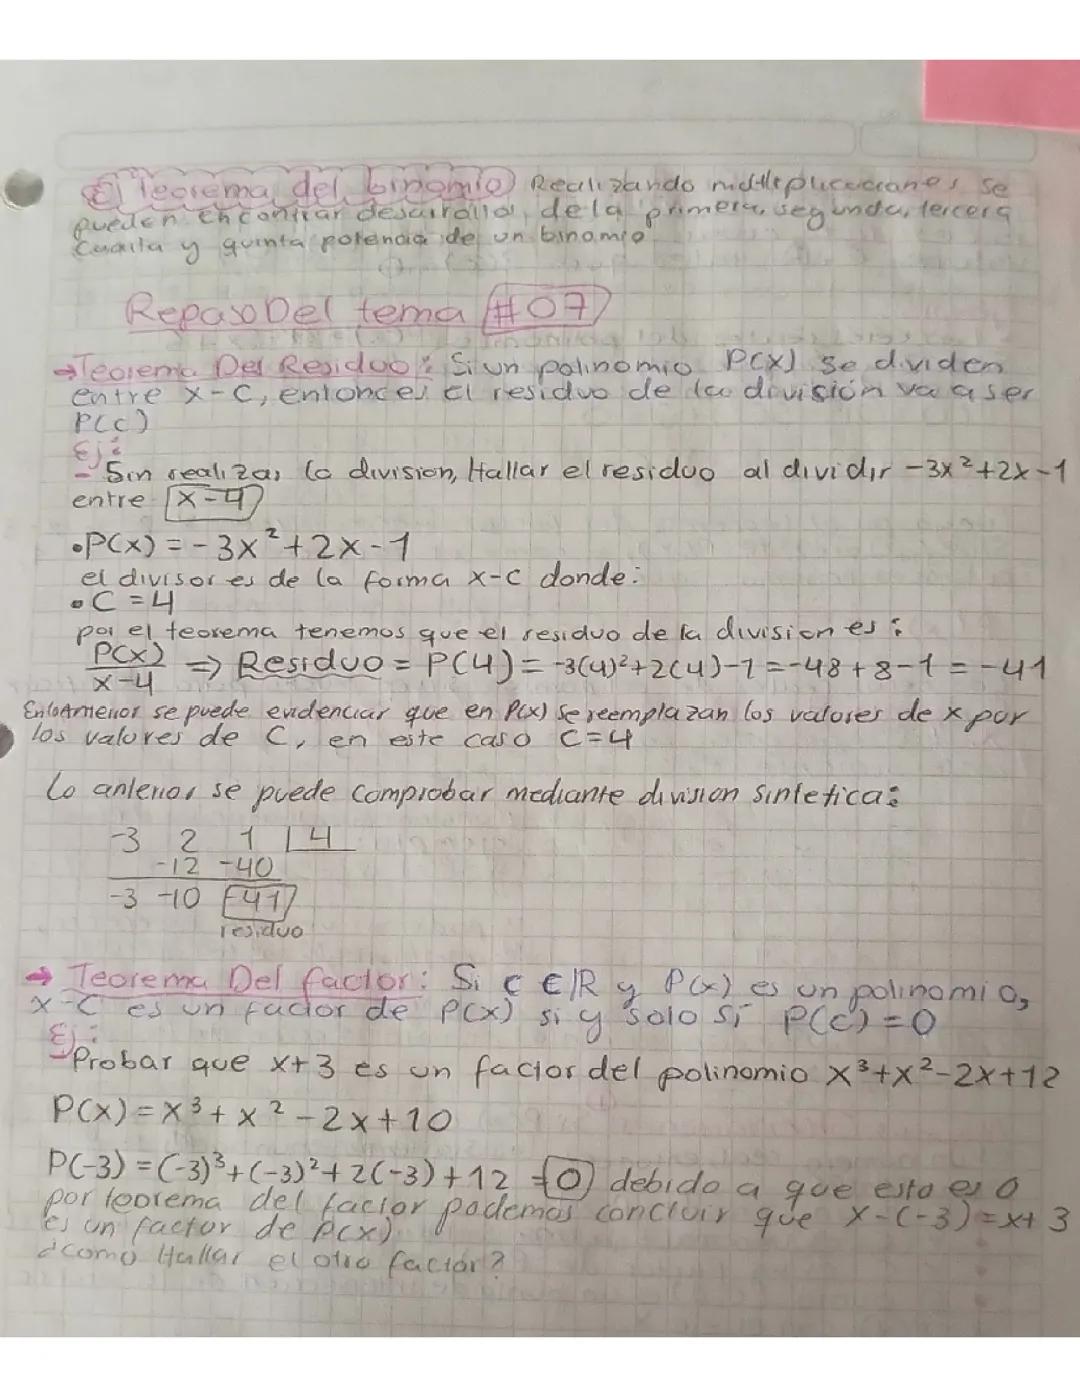 E) Teorema del binomio Realizando multiplicaciones se
pueden encontrar desarrollos, de la primera, segunda, tercera
cuarta y quinta potencia de un binomio
Repaso Del tema #07
→Teorema Del Residuo: Si un polinomio P(x) se dividen
entre x-c, entonces el residuo de la división va a ser
P(c)
Ej:
- Sin realizar la division, Hallar el residuo al dividir -3x²+2x-1
entre x-4
•P(x) = -3x²+2x-1
el divisor es de la forma x-c donde:
•C=4
por el teorema tenemos que el residuo de la division es:
P(x)/x-4 ⇒ Residuo = P(4) = -3(4)²+2(4)-1 = -48+8-1 = -41
En lo Anterior se puede evidenciar que en P(x) se reemplazan los valores de x por
los valores de C, en este caso C=4
Lo anterior se puede comprobar mediante division sintetica:
-3 2 1 |4
-12 -40
-3 -10 -41
residuo
→ Teorema Del factor: Si c ∈ ℝ y P(x) es un polinomio,
x-c es un factor de P(x) si y solo si P(c)=0
Ej:
-Probar que x+3 es un factor del polinomio x³+x²-2x+12
P(x)=x³+x²-2x+10
P(-3)=(-3)³+(-3)²+2(-3)+12=0 debido a que esto es 0
por teorema del factor podemos concluir que x-(-3)=x+3
es un factor de P(x)
¿como Hallar el otro factor?